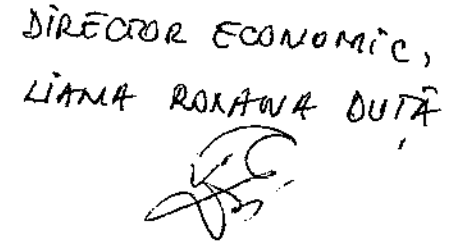 DIRECTOR ECONOMIC,
LIANA ROXANA DUȚĂ